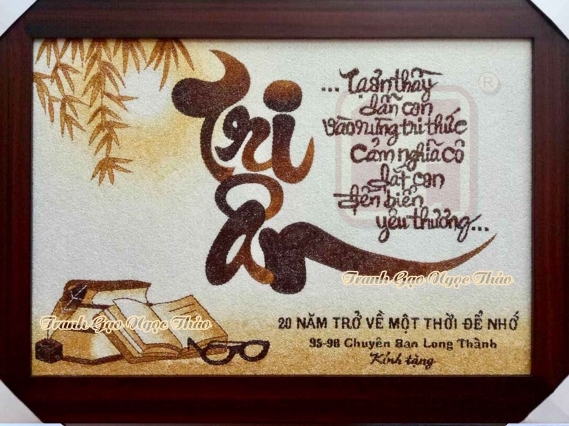 Tri
ân
... Tạ ơn thầy
dẫn con
vào rừng tri thức
Cảm nghĩa cô
dắt con
đến biển
yêu thương...
®
Tranh Gạo Ngọc Thảo
Tranh Gạo Ngọc Thảo
Tranh Gạo Ngọc Thảo
20 NĂM TRỞ VỀ MỘT THỜI ĐỂ NHỚ
95-98 Chuyên Ban Long Thành
Kính tặng